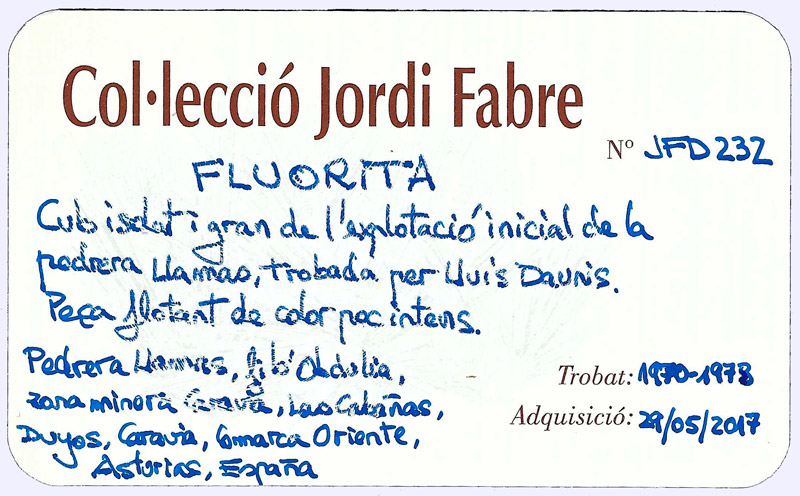 Col·lecció Jordi Fabre
Nº JFD232
FLUORITA
Cub isolat i gran de l'explotació inicial de la
pedrera Llamas, trobada per Lluís Daunis.
Peça flotant de color poc intens.
Pedrera Llamas, filó Obdulia,
zona minera Caravia, Las Cabañas,
Duyos, Caravia, Comarca Oriente,
Asturias, España
Trobat: 1970-1978
Adquisició: 29/05/2017